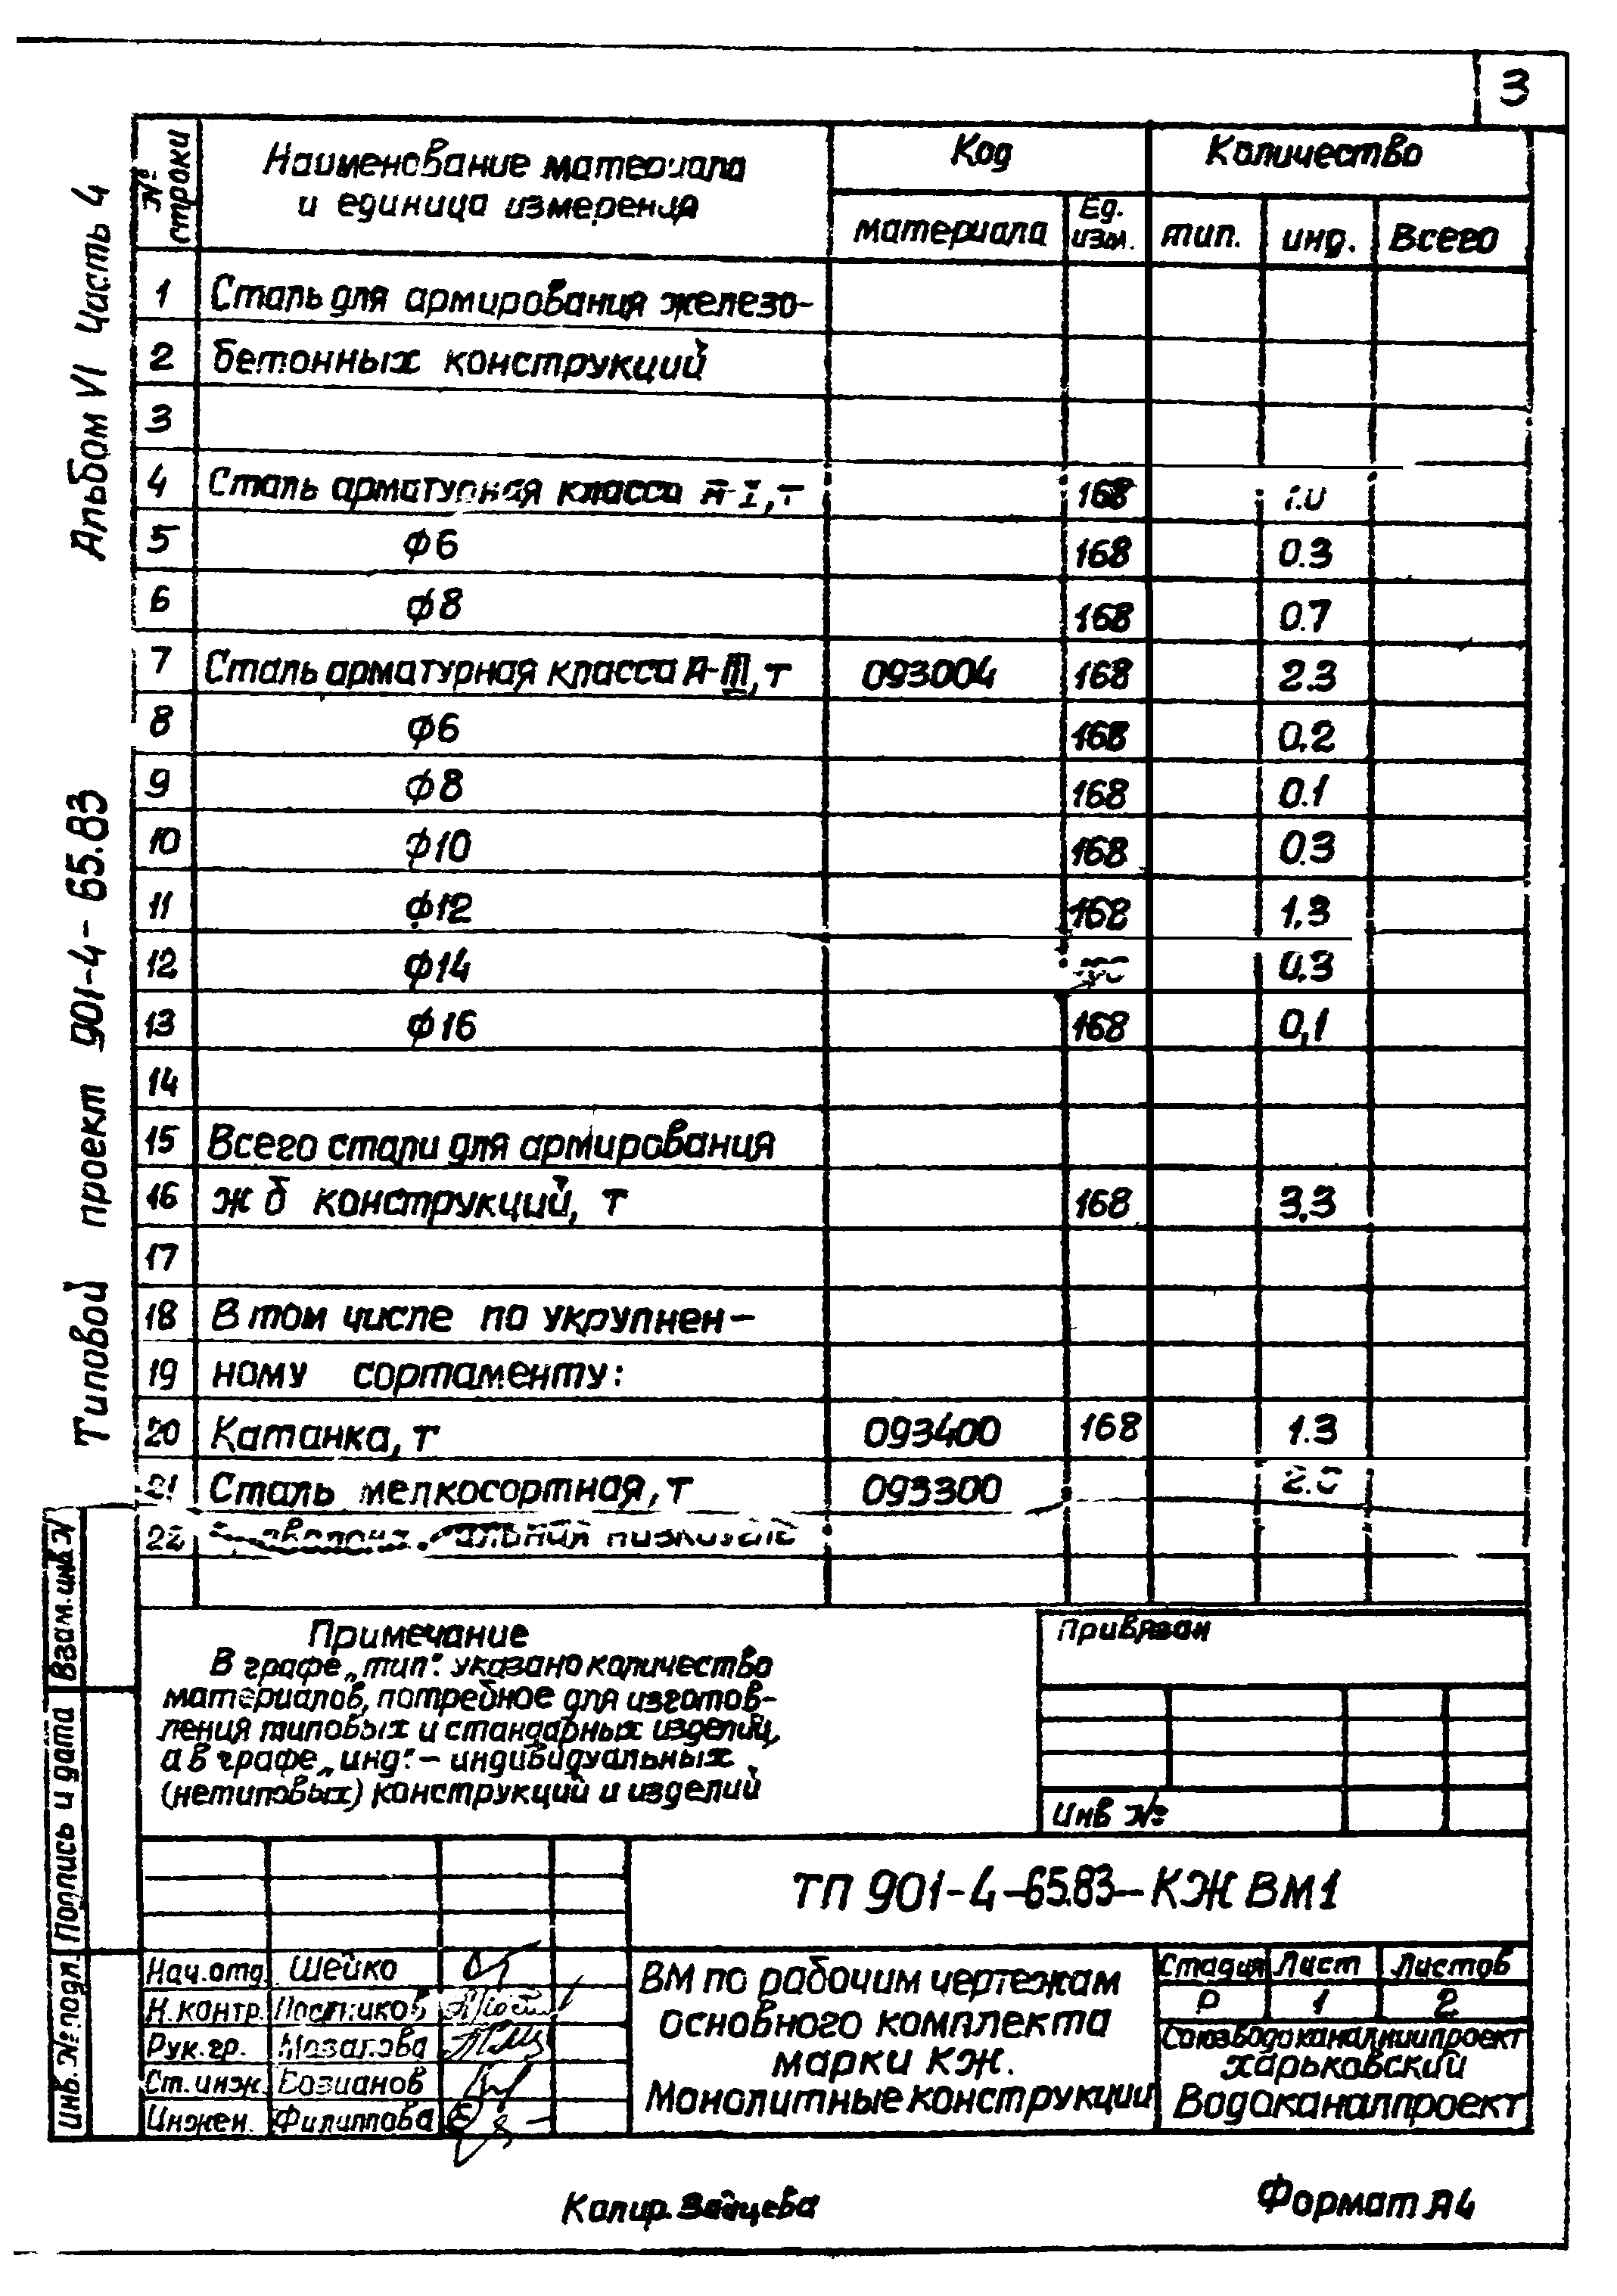 3
Альбом VI Часть 4
Типовой проект 901-4-65.83
№ строки
Наименование материала
и единица измерения
Код
Количество
материала
Ед. изм.
тип.
инд.
Всего
1 Сталь для армирования железо-
2 бетонных конструкций
3
4 Сталь арматурная класса А-I, т 168 1.0
5 ф6 168 0.3
6 ф8 168 0.7
7 Сталь арматурная класса А-III, т 093004 168 2.3
8 ф6 168 0.2
9 ф8 168 0.1
10 ф10 168 0.3
11 ф12 168 1.3
12 ф14 0.3
13 ф16 168 0,1
14
15 Всего стали для армирования
16 ж б конструкций, т 168 3,3
17
18 В том числе по укрупнен-
19 ному сортаменту:
20 Катанка, т 093400 168 1.3
21 Сталь мелкосортная, т 093300
22
Примечание
В графе „тип": указано количество
материалов, потребное для изготов-
ления типовых и стандарных изделий,
а в графе „инд": – индивидуальных
(нетиповых) конструкций и изделий
Привязан
Инв №
Взам. инв №
Подпись и дата
Инв. № подл.
ТП 901-4-65.83-КЖ ВМ1
Нач. отд. Шейко
Н. контр. Постников
Рук. гр.
Ст. инж. Бозианов
Инжен. Филиппова
ВМ по рабочим чертежам
основного комплекта
марки КЖ.
Монолитные конструкции
Стадия Лист Листов
Р 1 2
Союзводоканалниипроект
Харьковский
Водоканалпроект
Копир. Зайцева
Формат А4